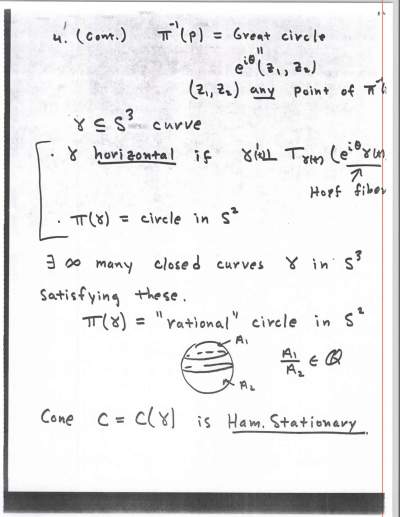 4! (cont.) π⁻¹(p) = Great circle
"
e^{iθ}(z₁, z₂)
(z₁, z₂) any point of π⁻¹
γ ⊆ S³ curve
· γ horizontal if γ'(t) ⊥ T_{γ(t)} (e^{iθ}γ(t)
Hopf fiber
· π(γ) = circle in S²
∃ ∞ many closed curves γ in S³
satisfying these.
π(γ) = "rational" circle in S²
A₁
A₁/A₂ ∈ Q
A₂
Cone C = C(γ) is Ham. Stationary